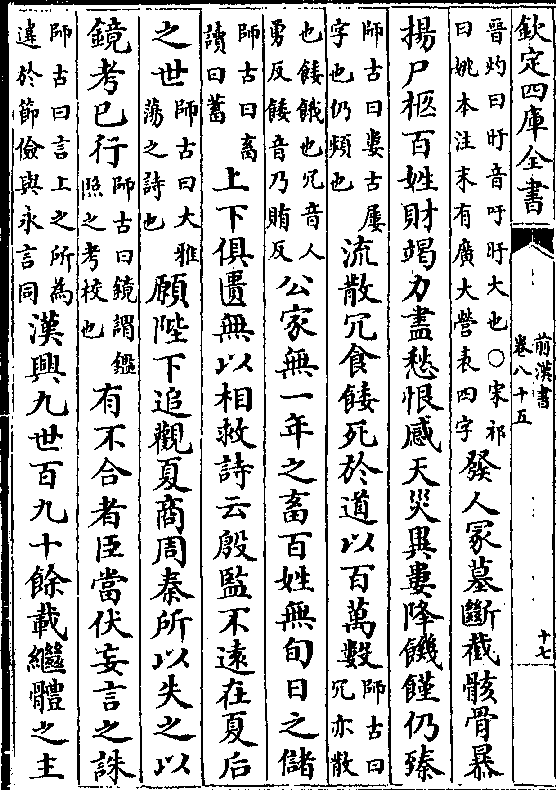 欽定四庫全書
前漢書
卷八十五
十七
晉灼曰盱音吁盱大也○宋祁
曰姚本注末有廣大營表四字
發人冢墓斷截骸骨暴
揚尸柩百姓財竭力盡愁恨感天災異婁降饑饉仍臻
師古曰婁古屢
字也仍頻也
流散冗食餧死於道以百萬數
師古曰
冗亦散
也餧餓也冗音人
勇反餧音乃賄反
公家無一年之畜百姓無旬日之儲
師古曰畜
讀曰蓄
上下俱匱無以相救詩云殷監不遠在夏后
之世
師古曰大雅
蕩之詩也
願陛下追觀夏商周秦所以失之以
鏡考已行
師古曰鏡謂鑑
照之考校也
有不合者臣當伏妄言之誅
師古曰言上之所為
違於節儉與永言同
漢興九世百九十餘載繼體之主